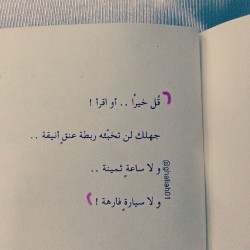 قُل خيرًا .. أو اقرأ !
جهلك لن تخبّئه ربطة عنقٍ أنيقة ..
ولا ساعةٍ ثمينة ..
ولا سيارةٍ فارهة !
@ghaliah01